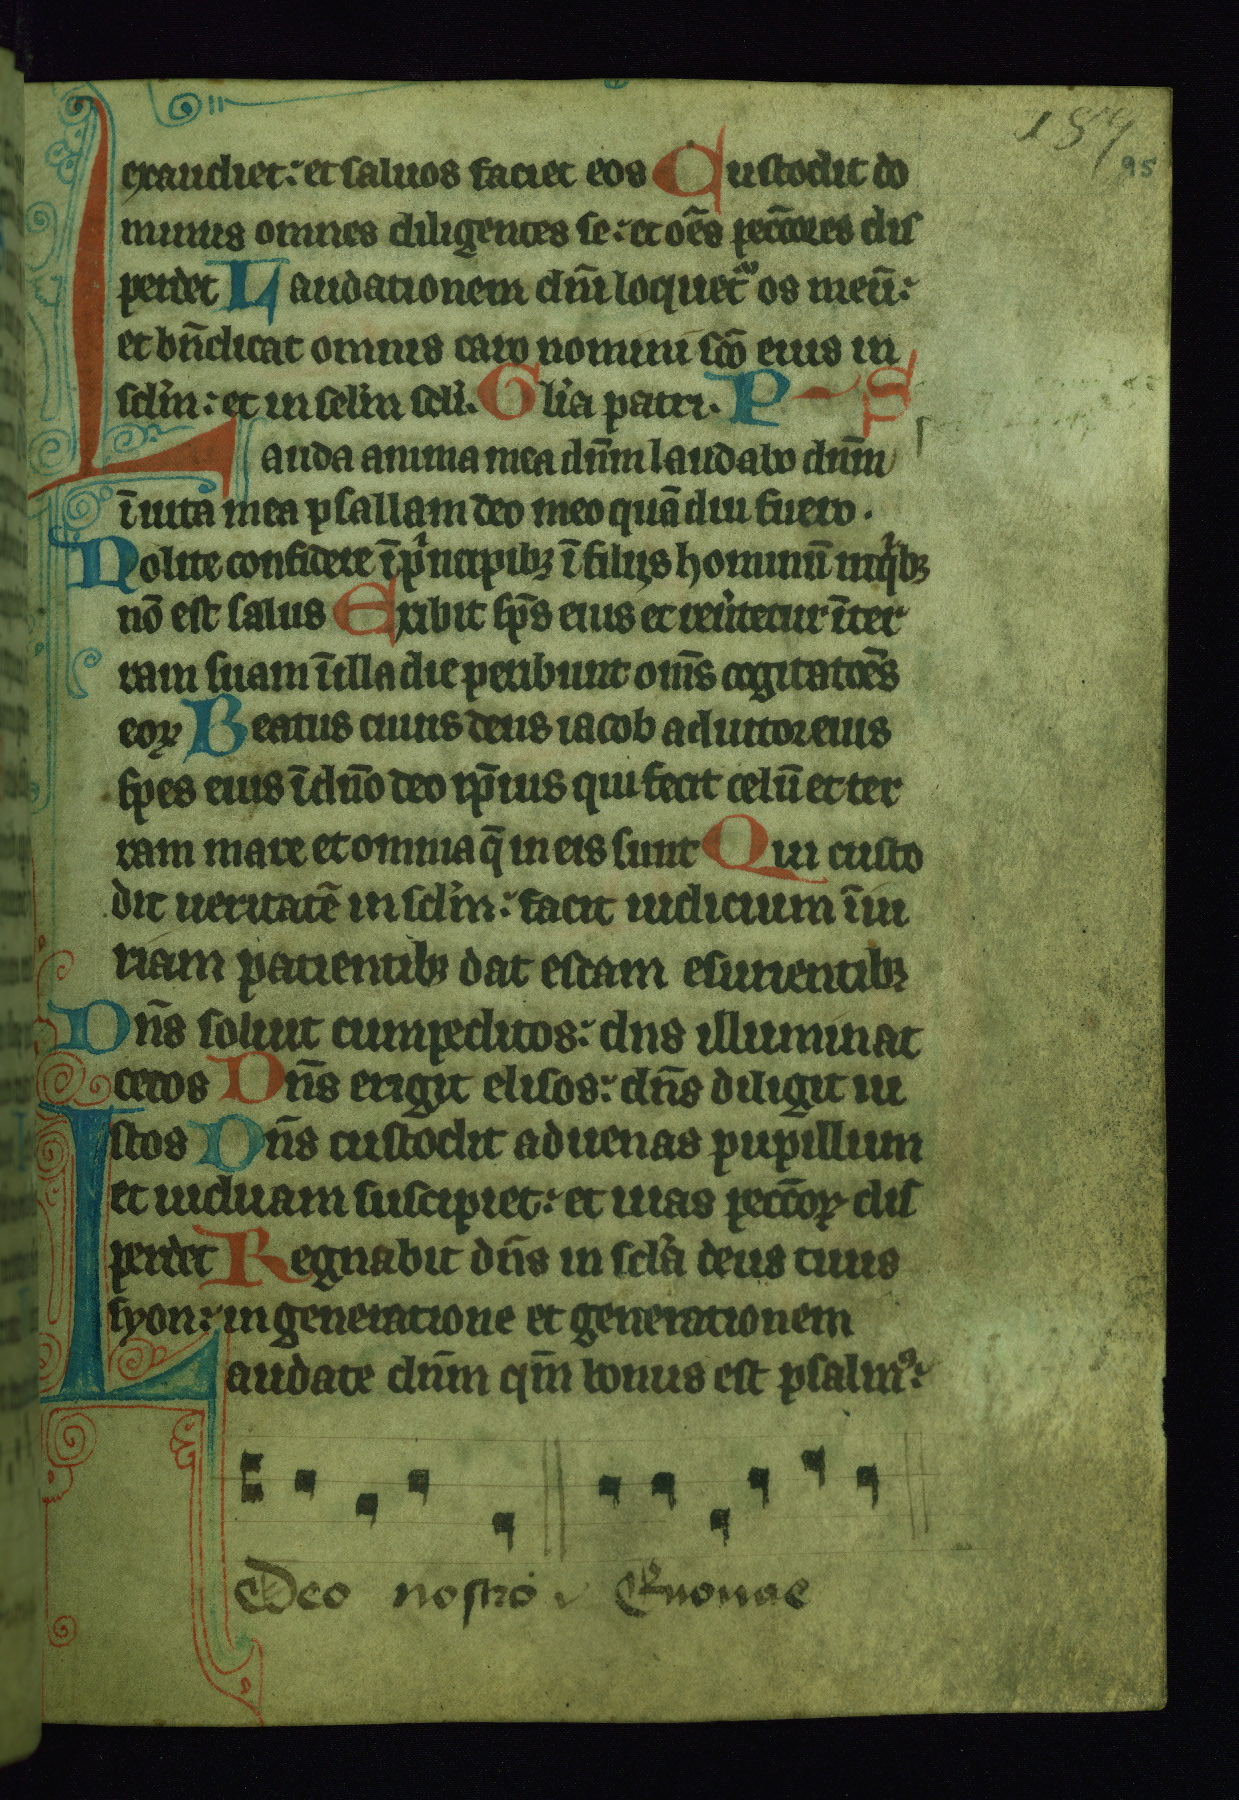 157
95
exaudiet: et saluos faciet eos Custodit do
minus omnes diligentes se: et oēs pecc̄ores dis
perdet Laudationem dn̄i loquet᷑ os meū:
et bn̄dicat omnis caro nomini sc̄o eius in
sclm̄: et in sclm̄ scli. Glia patri. Ps
Lauda anima mea dn̄m laudabo dn̄m
ī uita mea psallam deo meo quādiu fuero.
Nolite confidere ī pͥncipibꝫ ī filijs hominū in qͥbꝫ
nō est salus Exibit sp̄s eius et reu͛tetur ī ter
ram suam ī illa die peribunt om̄s cogitatōes
eoꝝ Beatus cuius deus iacob adiutor eius
spes eius ī dn̄o deo ip̄ius qui fecit celū et ter
ram mare et omnia q̄ in eis sunt Qui custo
dit ueritatē in sclm̄: facit iudicium īiu
riam patientibꝫ dat escam esurientibꝫ
Dn̄s soluit cumpeditos: dns illuminat
cecos Dn̄s erigit elisos: dn̄s diligit iu
stos Dn̄s custodit aduenas pupillum
et uiduam suscipiet: et uias pecc̄oꝝ dis
perdet Regnabit dn̄s in scl̄a deus tuus
syon: in generatione et generationem
Laudate dn̄m qm̄ bonus est psalmꝰ:
Deo nostro Euouae